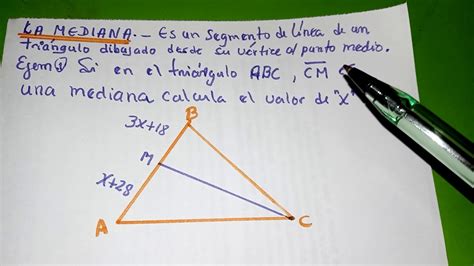 LA MEDIANA:- Es un segmento de línea de un
triángulo dibujado desde su vértice al punto medio.
Ejem① Si en el triángulo ABC, CM
una mediana calcula el valor de "x"
B
3x+18
M
x+28
A
C